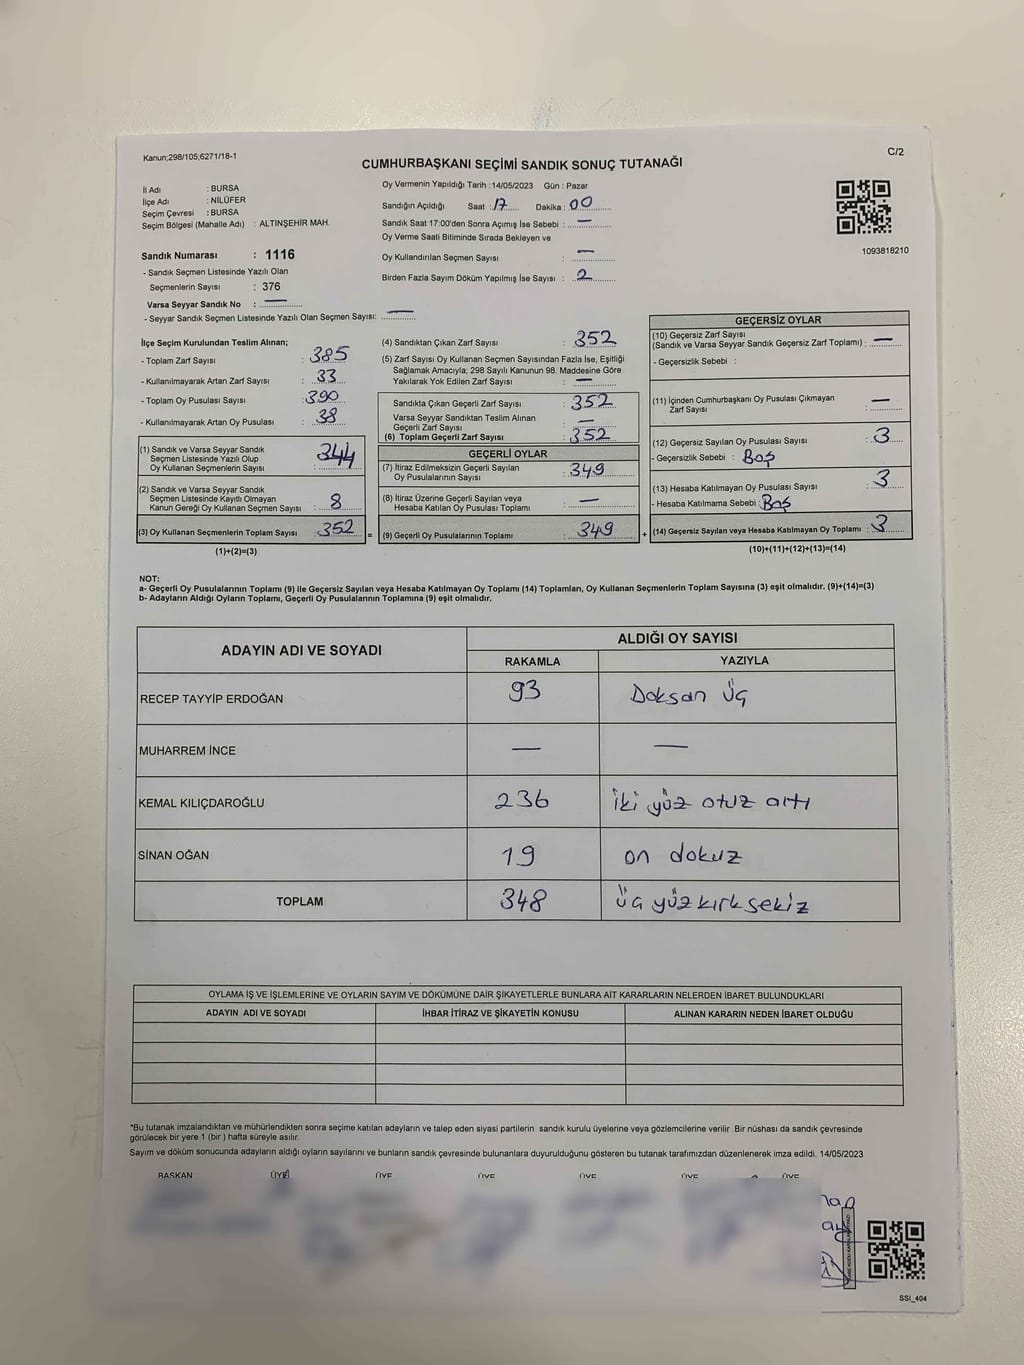 Kanun;298/105;6271/18-1
C/2
CUMHURBAŞKANI SEÇİMİ SANDIK SONUÇ TUTANAĞI
İl Adı : BURSA
İlçe Adı : NİLÜFER
Seçim Çevresi : BURSA
Seçim Bölgesi (Mahalle Adı) : ALTINŞEHİR MAH.
Oy Vermenin Yapıldığı Tarih :14/05/2023 Gün : Pazar
Sandığın Açıldığı Saat : 17 Dakika : 00
Sandık Saat 17:00'den Sonra Açımış İse Sebebi : —
Oy Verme Saati Bitiminde Sırada Bekleyen ve
Oy Kullandırılan Seçmen Sayısı : —
Birden Fazla Sayım Döküm Yapılmış İse Sayısı : 2
1093818210
Sandık Numarası : 1116
- Sandık Seçmen Listesinde Yazılı Olan
Seçmenlerin Sayısı : 376
Varsa Seyyar Sandık No : —
- Seyyar Sandık Seçmen Listesinde Yazılı Olan Seçmen Sayısı: —
İlçe Seçim Kurulundan Teslim Alınan;
- Toplam Zarf Sayısı : 385
- Kullanılmayarak Artan Zarf Sayısı : 33
- Toplam Oy Pusulası Sayısı : 390
- Kullanılmayarak Artan Oy Pusulası : 38
(1) Sandık ve Varsa Seyyar Sandık
Seçmen Listesinde Yazılı Olup
Oy Kullanan Seçmenlerin Sayısı : 344
(2) Sandık ve Varsa Seyyar Sandık
Seçmen Listesinde Kayıtlı Olmayan
Kanun Gereği Oy Kullanan Seçmen Sayısı : 8
(3) Oy Kullanan Seçmenlerin Toplam Sayısı : 352 =
(1)+(2)=(3)
(4) Sandıktan Çıkan Zarf Sayısı : 352
(5) Zarf Sayısı Oy Kullanan Seçmen Sayısından Fazla İse, Eşitliği
Sağlamak Amacıyla; 298 Sayılı Kanunun 98. Maddesine Göre
Yakılarak Yok Edilen Zarf Sayısı : —
Sandıkta Çıkan Geçerli Zarf Sayısı : 352
Varsa Seyyar Sandıktan Teslim Alınan
Geçerli Zarf Sayısı : —
(6) Toplam Geçerli Zarf Sayısı : 352
GEÇERLİ OYLAR
(7) İtiraz Edilmeksizin Geçerli Sayılan
Oy Pusulalarının Sayısı : 349
(8) İtiraz Üzerine Geçerli Sayılan veya
Hesaba Katılan Oy Pusulası Toplamı : —
(9) Geçerli Oy Pusulalarının Toplamı : 349 +
GEÇERSİZ OYLAR
(10) Geçersiz Zarf Sayısı
(Sandık ve Varsa Seyyar Sandık Geçersiz Zarf Toplamı) : —
- Geçersizlik Sebebi :
(11) İçinden Cumhurbaşkanı Oy Pusulası Çıkmayan
Zarf Sayısı : —
(12) Geçersiz Sayılan Oy Pusulası Sayısı : 3
- Geçersizlik Sebebi : Boş
(13) Hesaba Katılmayan Oy Pusulası Sayısı : 3
- Hesaba Katılmama Sebebi : Boş
(14) Geçersiz Sayılan veya Hesaba Katılmayan Oy Toplamı : 3
(10)+(11)+(12)+(13)=(14)
NOT:
a- Geçerli Oy Pusulalarının Toplamı (9) ile Geçersiz Sayılan veya Hesaba Katılmayan Oy Toplamı (14) Toplamları, Oy Kullanan Seçmenlerin Toplam Sayısına (3) eşit olmalıdır. (9)+(14)=(3)
b- Adayların Aldığı Oyların Toplamı, Geçerli Oy Pusulalarının Toplamına (9) eşit olmalıdır.
ADAYIN ADI VE SOYADI
ALDIĞI OY SAYISI
RAKAMLA YAZIYLA
RECEP TAYYİP ERDOĞAN 93 Doksan üç
MUHARREM İNCE — —
KEMAL KILIÇDAROĞLU 236 iki yüz otuz altı
SİNAN OĞAN 19 on dokuz
TOPLAM 348 üç yüz kırk sekiz
OYLAMA İŞ VE İŞLEMLERİNE VE OYLARIN SAYIM VE DÖKÜMÜNE DAİR ŞİKAYETLERLE BUNLARA AİT KARARLARIN NELERDEN İBARET BULUNDUKLARI
ADAYIN ADI VE SOYADI İHBAR İTİRAZ VE ŞİKAYETİN KONUSU ALINAN KARARIN NEDEN İBARET OLDUĞU
*Bu tutanak imzalandıktan ve mühürlendikten sonra seçime katılan adayların ve talep eden siyasi partilerin sandık kurulu üyelerine veya gözlemcilerine verilir .Bir nüshası da sandık çevresinde
görülecek bir yere 1 (bir ) hafta süreyle asılır.
Sayım ve döküm sonucunda adayların aldığı oyların sayılarını ve bunların sandık çevresinde bulunanlara duyurulduğunu gösteren bu tutanak tarafımızdan düzenlenerek imza edildi. 14/05/2023
BAŞKAN ÜYE ÜYE ÜYE ÜYE ÜYE ÜYE
SSI_404